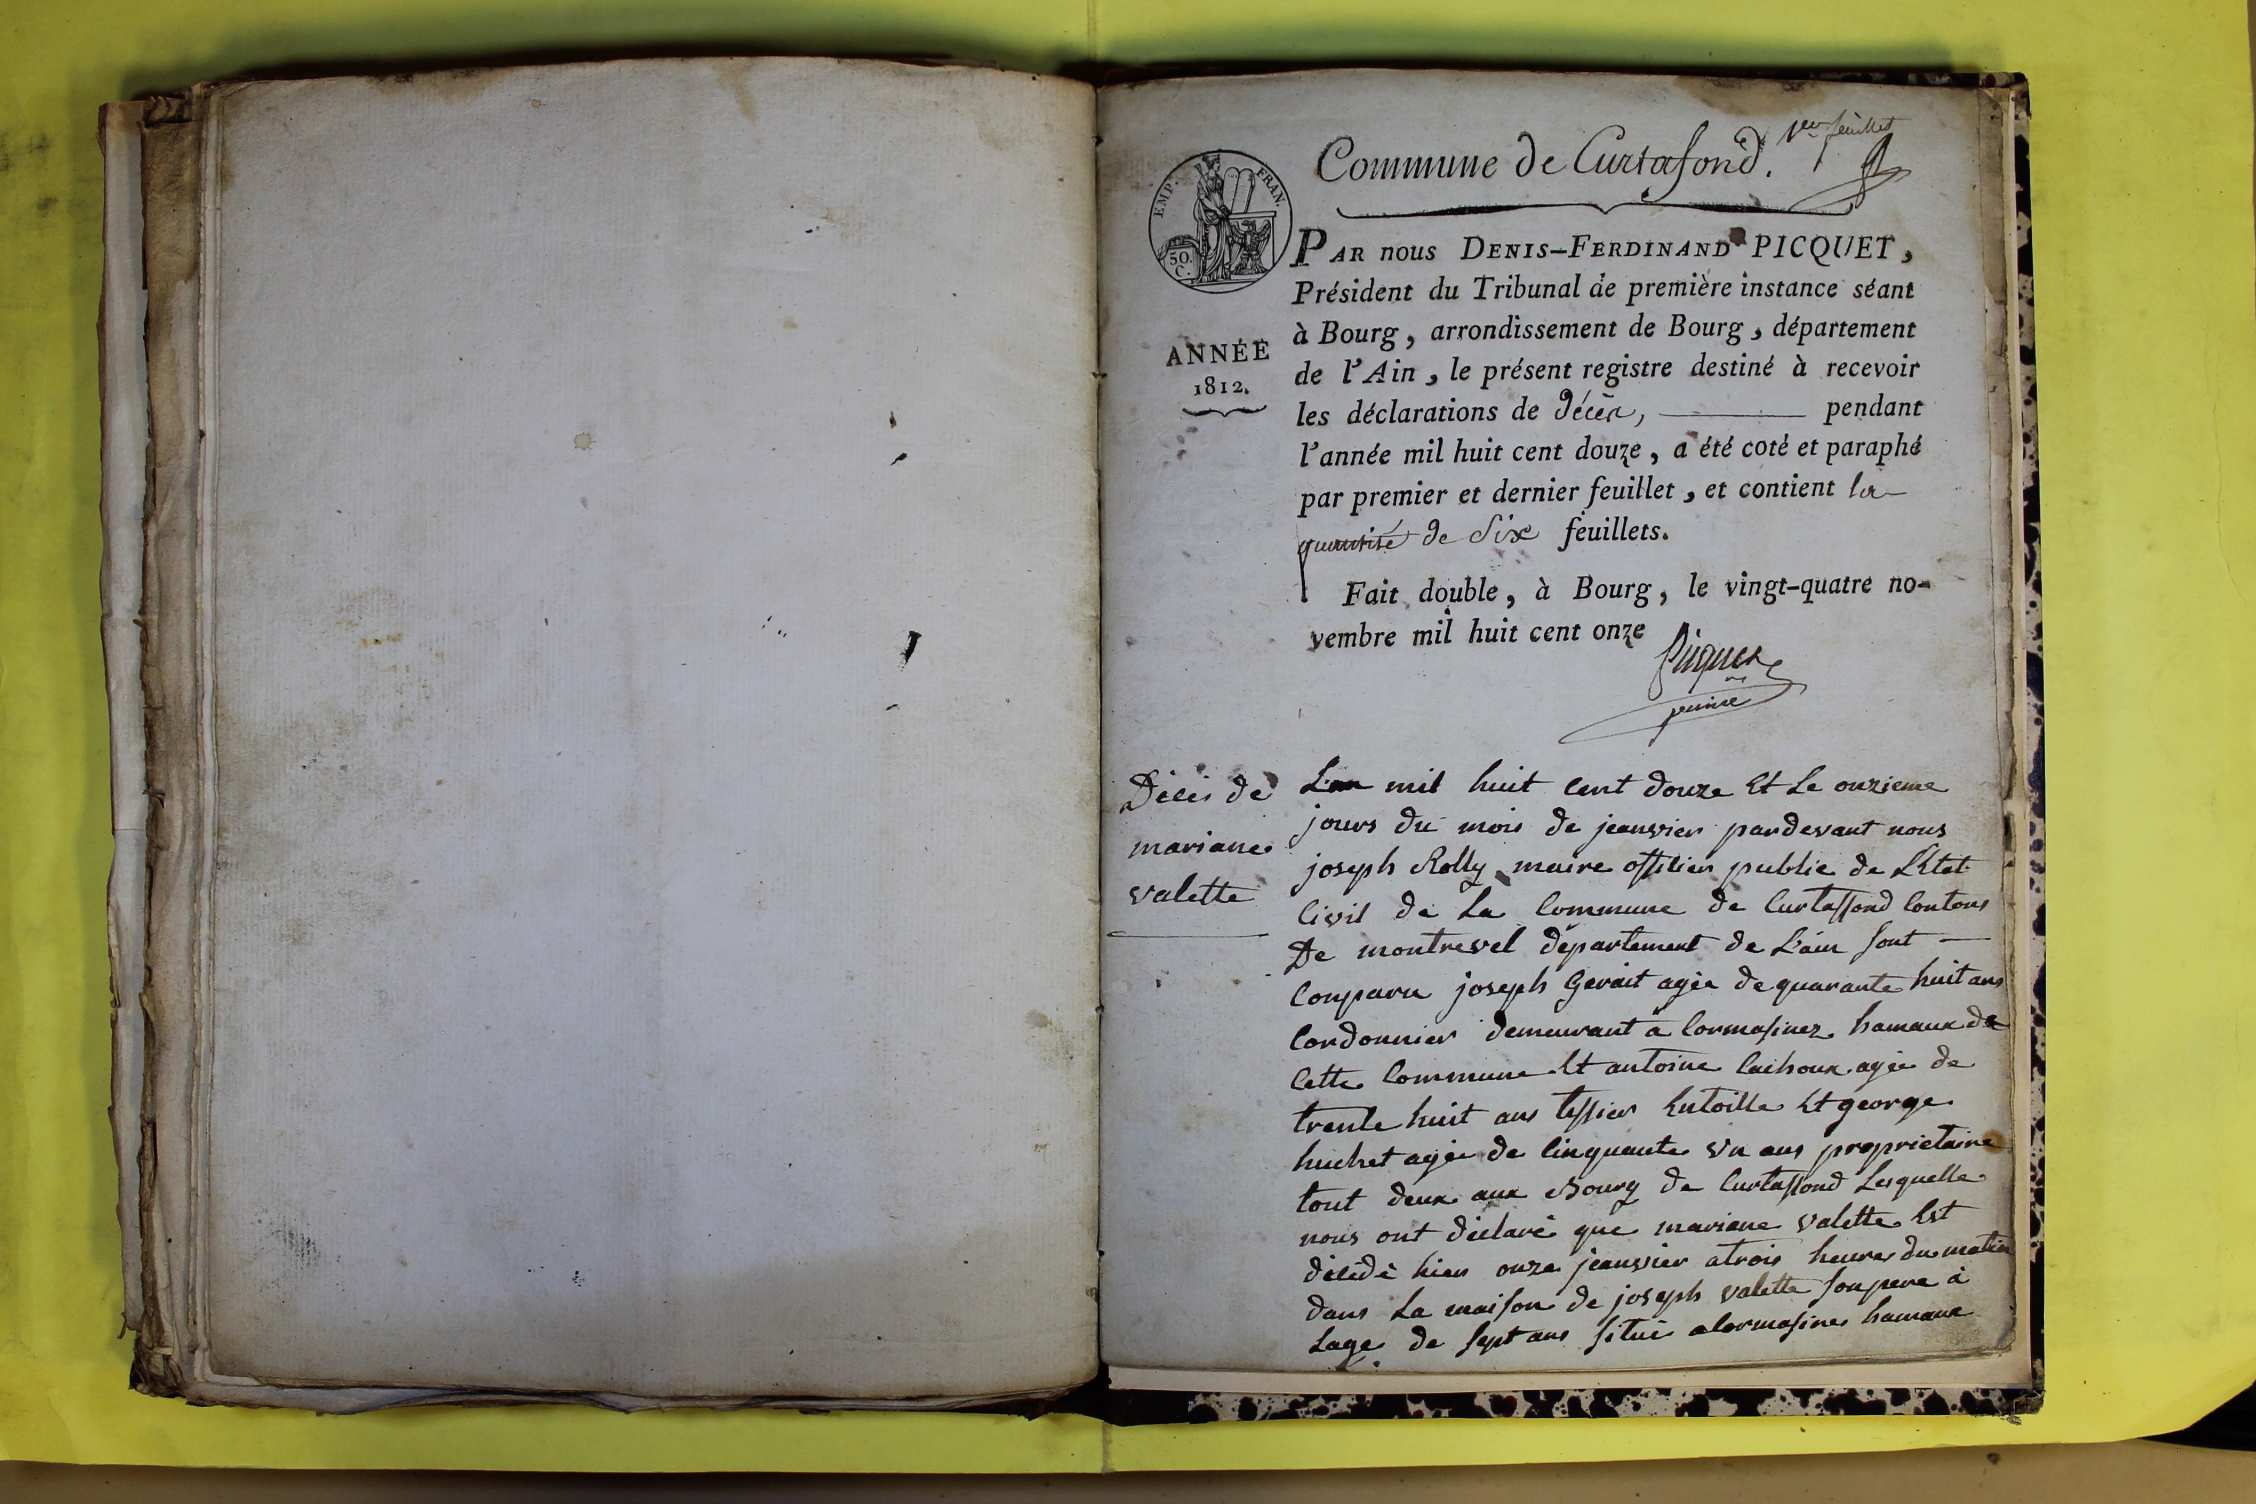 1er feuillet
Commune de Curtafond.
EMP. FRAN.
50.
C.
ANNÉE
1812.
PAR nous DENIS-FERDINAND PICQUET,
Président du Tribunal de première instance séant
à Bourg, arrondissement de Bourg, département
de l'Ain, le présent registre destiné à recevoir
les déclarations de Décès, pendant
l'année mil huit cent douze, a été coté et paraphé
par premier et dernier feuillet, et contient la
quantité de Six feuillets.
Fait double, à Bourg, le vingt-quatre no-
vembre mil huit cent onze
Picquet
Décés de
mariane
valette
L'an mil huit Cent douze Et Le onzieme
jours du mois de jeanvier pardevant nous
joseph Rolly maire offitier public de L'Etat
Civil de La Commune de Curtaffond Contons
De montrevel département de L'ain sont
Comparu joseph Gerait agée de quarante huit ans
Cordonnier demeurant a Cormasinez hamaux de
Cette Commune Et antoine agée de
trente huit ans tessier Entoille Et george
huchet agée de Cinquante un ans proprietaire
tout deux aux Bourg de Curtaffond Lesquelle
nous ont déclaré que mariane valette Est
décédé hier onze jeanvier atrois heures du matin
dans La maison de joseph valette son pere à
Lage de sept ans situé aCormasines hamaux